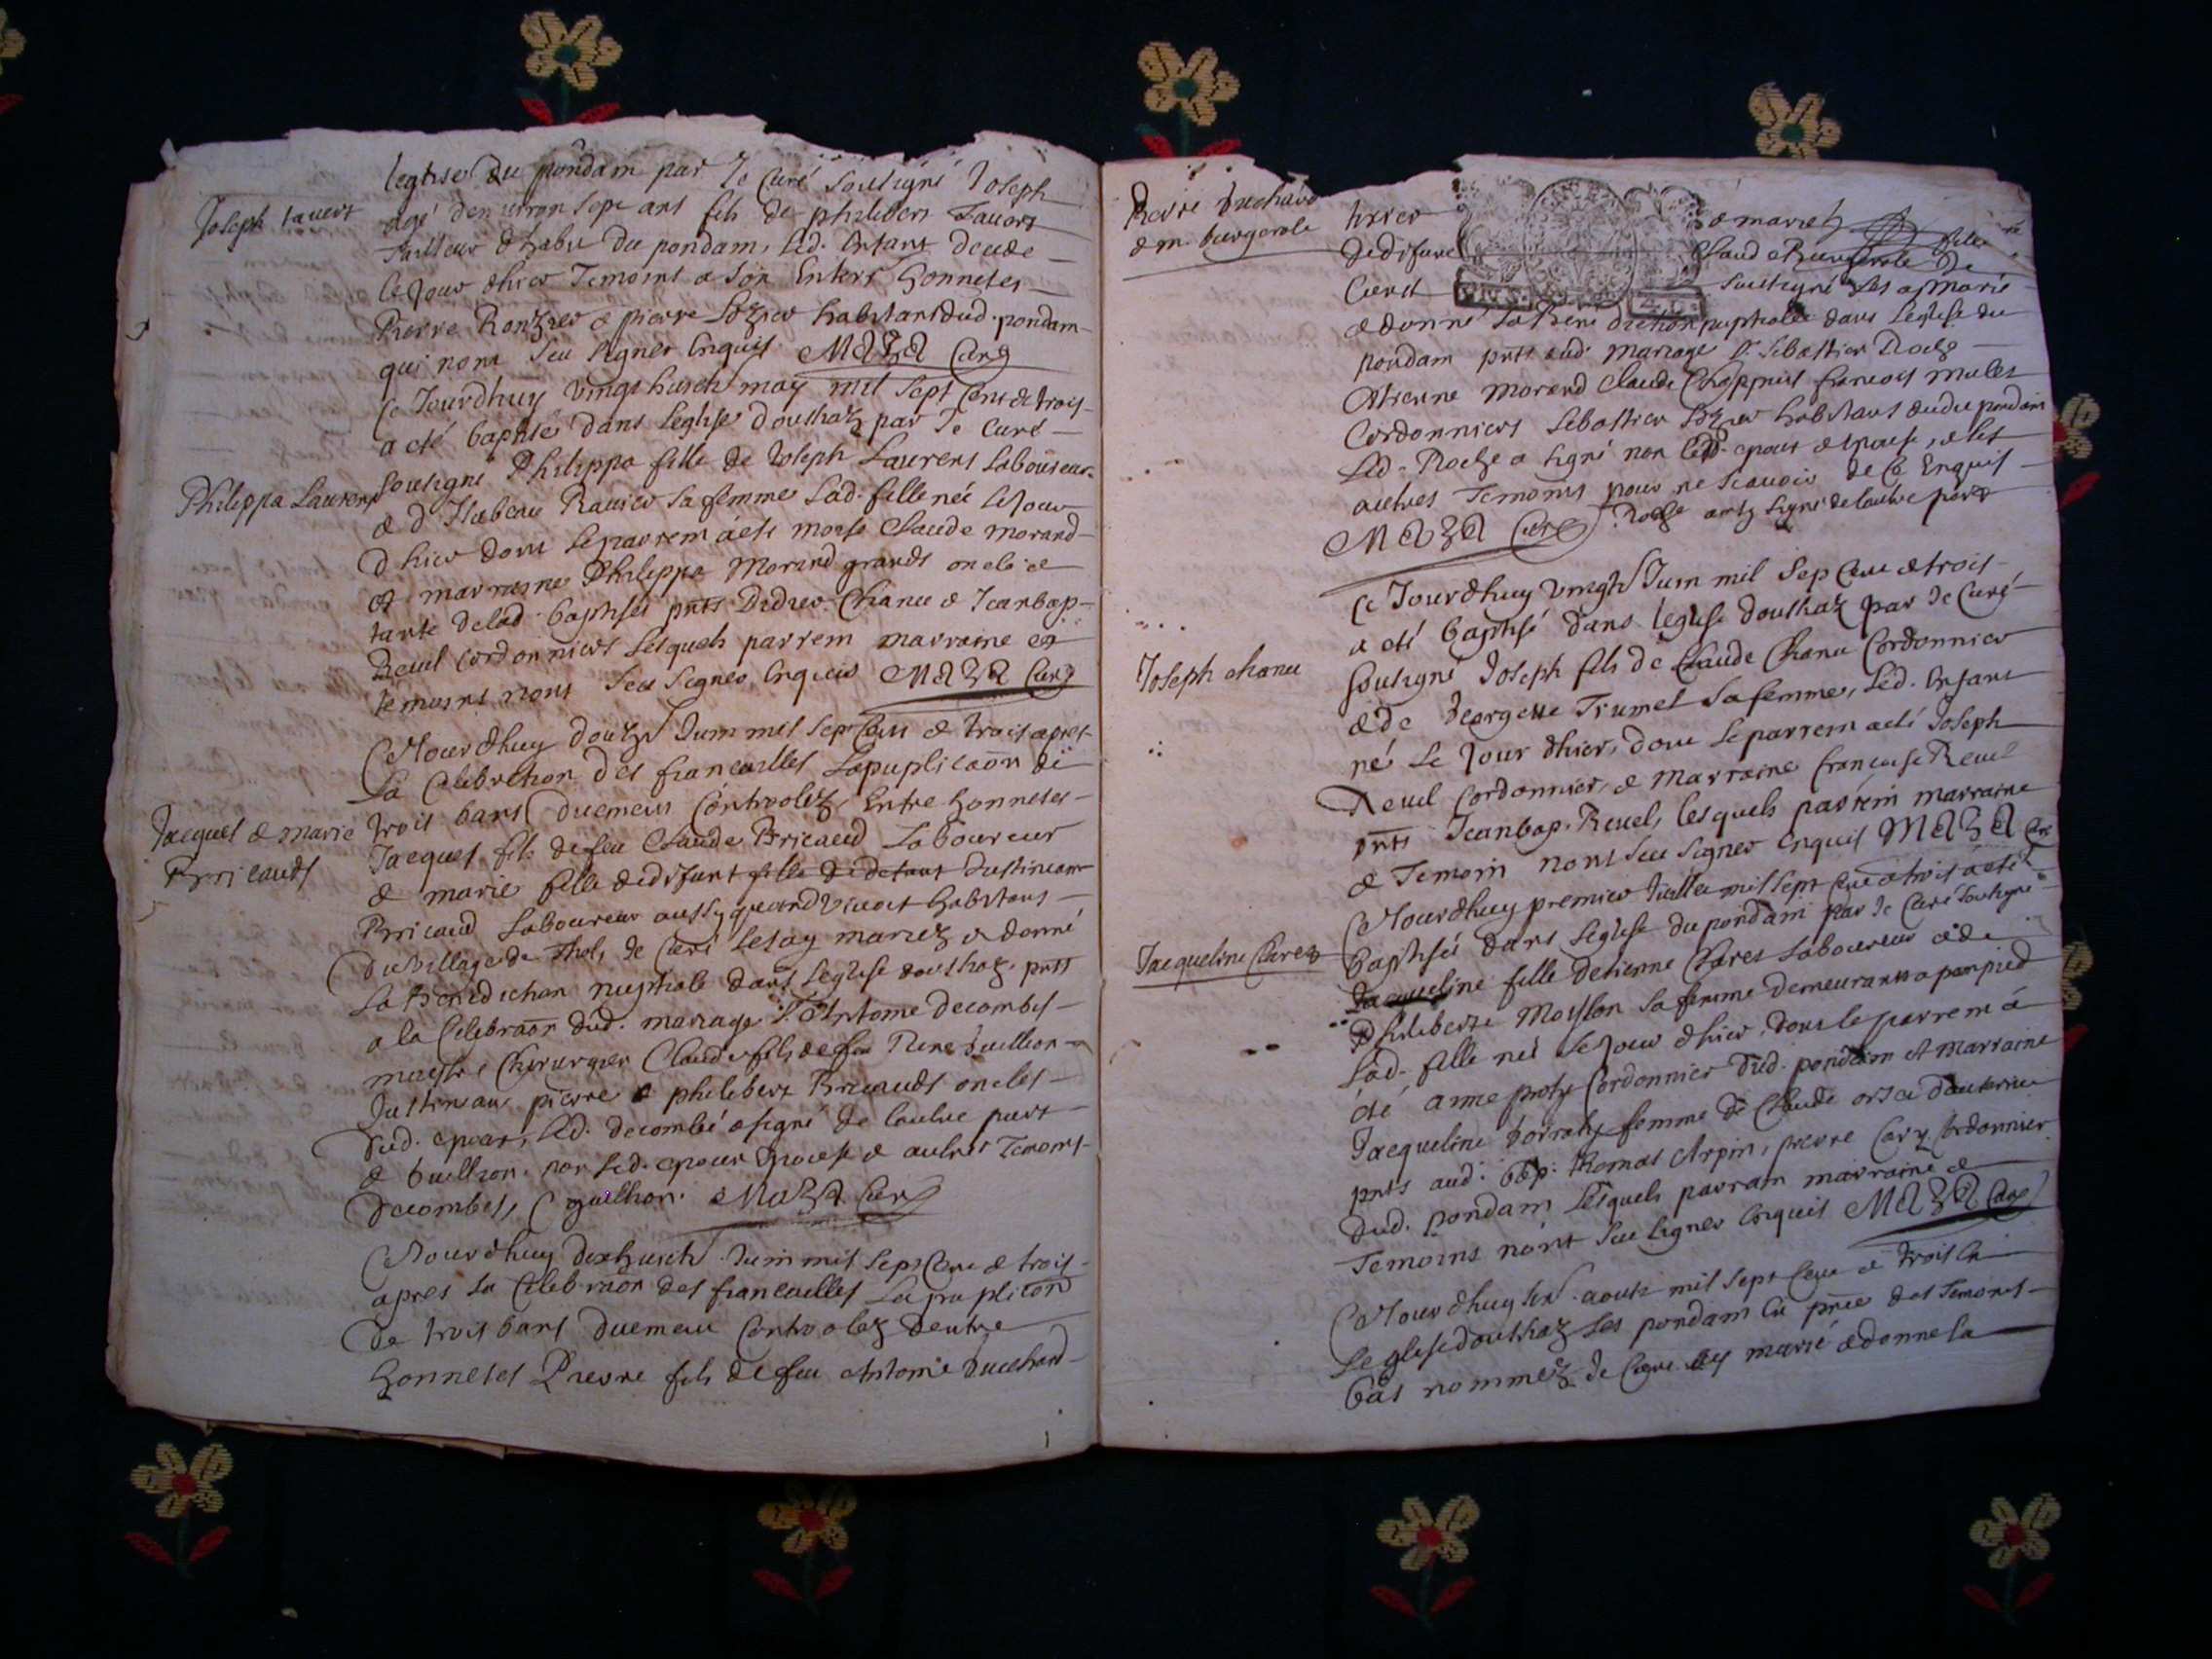 leglise du pondam par Je Curé Soutsigné Joseph
Joseph tavert
agé denviron Sept ans fils de philibert Tavert
Tailleur dhabit du pondam, Led. Enfant decede
le Jour dhier Temoins a Son Enterr honnetes
Pierre Ronzier & pierre habitants dud. pondam
qui nont Seu Signer Enquis MaZa Curé
Ce Jourdhuy Vingt huich may mil Sept Cent & trois
a eté baptise dans Leglise douthaz par Je Curé
Philippa Laurent
Soutsigné Philippa fille de Joseph Laurent Laboureur
& d Isabeau Ravier Sa femme Lad. fille née Le Jour
dhier dont Le parrein à eté Claude Morand
& marreine Philippa Morand grands oncle &
tante delad. baptisée pnts Didier Chanu & Jeanbap.
Revel Cordonniers Lesquels parrein marraine &
temoins nont Seu Signer Enquis MaZa Curé
Ce Jourdhuy douze Juin mil Sept Cens & trois apres
La Celebration des fiancailles La puplicaõn de
Jacques & marie
trois bans Duement Controlez, Entre honnetes
Bricauds
Jacques fils de feu Claude Bricaud Laboureur
& marie fille dedefunt fille dedefunt Justinian
Bricaud Laboureur aussy quand Vivoit habitans
du Village de Thol, Je Curé Les ay mariez & donné
La Benediction nuptiale dans Leglise douthaz pnts
a la Celebraõn dud. mariage Sr. Antoine decombes
maistre Chirurgien Claude fils de feu Rene Vuillion
Justinian pierre & philibert Bricauds oncles
dud. epoux, Led. decombe a signé de lautre part
& Vuillion. non Led. epoux Epouse & autres Temoins
decombes, C guillion. MaZa Curé
Ce Jourdhuy dixhuich Juin mil Sept Cent & trois
apres La Celebraõn des fiancailles La puplicõn
de trois bans Duement Controlez dentre
honnetes Pierre fils de feu Antoine Vuchard
Pierre Vuchard
& m. burgerole
& marie fille
dedefunt Claude Burgerole
Curé soutsigné Les a Marié
& donné La Benediction nuptialle dans Leglise du
pondam pnts aud. mariage Sr. Sebastien Roche
Etienne Morand Claude Chappuis francois mulet
Cordonniers Sebastien habitans dudit pondam
Led. Roche a signé non Led. epoux & epouse, & les
autres Temoins pour ne Scavoir de Ce Enquis
MaZa Curé Roche ont Signé de lautre part
Ce Jourdhuy Vingt Juin mil Sept Cent & trois
a eté baptisé dans leglise douthaz par Je Curé
Joseph chanu
soutsigné Joseph fils de Claude Chanu Cordonnier
& de Georgette Trumel Sa femme, Led. Enfant
né Le Jour dhier, dont Le parrein a eté Joseph
Revel Cordonnier, & Marraine francoise Revel
pnts Jeanbap. Revel, lesquels parrein marraine
& Temoin nont Seu Signer Enquis MaZa Cure
Ce Jourdhuy premier Juillet mil Sept Cent & trois à eté
baptisée dans Leglise du pondam par Je Curé soutsigné
Jacqueline Charez
Jacqueline fille detienne Charet Laboureur & de
Philiberte Moisson Sa femme demeurants a pampied
Lad. fille née Le Jour dhier, dont Le parrein à
été anne proty Cordonnier dud. pondam & Marraine
Jacqueline femme de Claude
pnts aud. bap. Thomas Arpin, pierre Cordonnier
dud. pondam Lesquels parrain marraine &
Temoins nont Seu Signer Enquis MaZa Curé
Ce Jourdhuy Six aoust mil Sept Cent & trois En
Leglise douthaz Les pondam En pnce des Temoins
bas nommez Je Curé ay marié & donné la